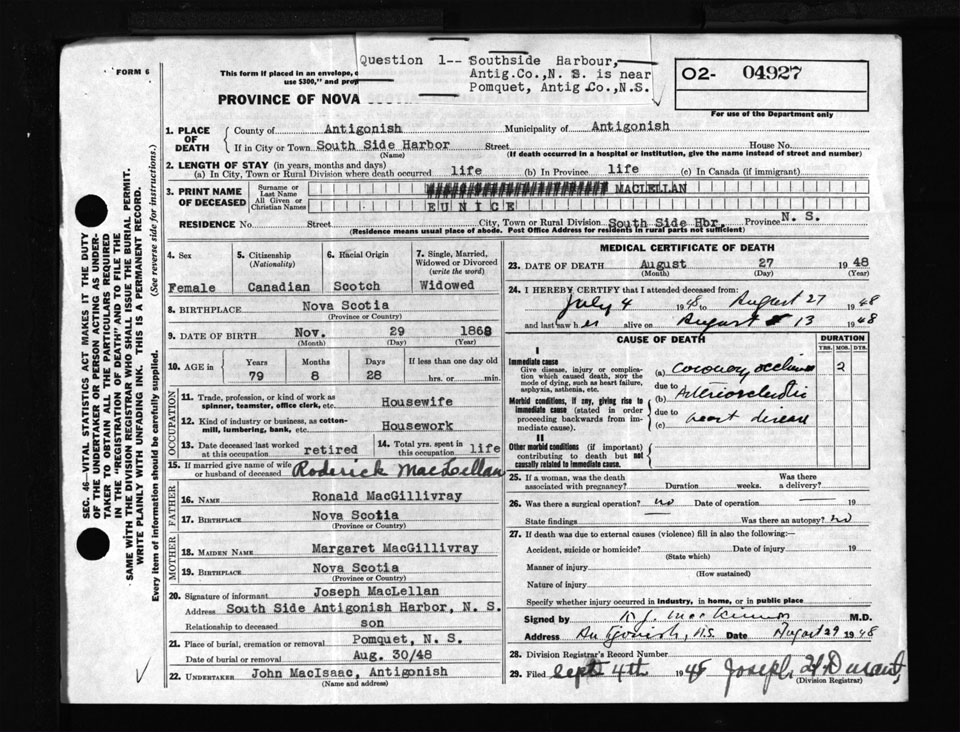 FORM 6
This form if placed in an envelope,
use $300," and
Question 1-- Southside Harbour,
Antig.Co.,N. S. is near
Pomquet, Antig Co.,N.S.
02- 04927
For use of the Department only
PROVINCE OF NOVA
1. PLACE OF DEATH
County of Antigonish Municipality of Antigonish
If in City or Town South Side Harbor Street House No.
(Name) (If death occurred in a hospital or institution, give the name instead of street and number)
2. LENGTH OF STAY (in years, months and days)
(a) In City, Town or Rural Division where death occurred life (b) In Province life (c) In Canada (if immigrant)
3. PRINT NAME OF DECEASED
Surname or Last Name MACLELLAN
All Given or Christian Names EUNICE
RESIDENCE No. Street City, Town or Rural Division South Side Hbr. Province N. S.
(Residence means usual place of abode. Post Office Address for residents in rural parts not sufficient)
4. Sex
Female
5. Citizenship (Nationality)
Canadian
6. Racial Origin
Scotch
7. Single, Married, Widowed or Divorced (write the word)
Widowed
8. BIRTHPLACE Nova Scotia
(Province or Country)
9. DATE OF BIRTH Nov. 29 1868
(Month) (Day) (Year)
10. AGE in Years Months Days If less than one day old
79 8 28 hrs. or min.
OCCUPATION
11. Trade, profession, or kind of work as spinner, teamster, office clerk, etc. Housewife
12. Kind of industry or business, as cotton-mill, lumbering, bank, etc. Housework
13. Date deceased last worked at this occupation retired
14. Total yrs. spent in this occupation life
15. If married give name of wife or husband of deceased Roderick MacLellan
FATHER
16. NAME Ronald MacGillivray
17. BIRTHPLACE Nova Scotia
(Province or Country)
MOTHER
18. MAIDEN NAME Margaret MacGillivray
19. BIRTHPLACE Nova Scotia
(Province or Country)
20. Signature of informant Joseph MacLellan
Address South Side Antigonish Harbor, N. S.
Relationship to deceased son
21. Place of burial, cremation or removal Pomquet, N. S.
Date of burial or removal Aug. 30/48
22. UNDERTAKER John MacIsaac, Antigonish
(Name and address)
MEDICAL CERTIFICATE OF DEATH
23. DATE OF DEATH August 27 1948
(Month) (Day) (Year)
24. I HEREBY CERTIFY that I attended deceased from:
July 4 1948 to August 27 1948
and last saw her alive on August 13 1948
CAUSE OF DEATH
DURATION
YRS. MOS. DYS.
I
Immediate cause
Give disease, injury or complication which caused death, NOT the mode of dying, such as heart failure, asphyxia, asthenia, etc.
(a) coronary occlusion 2
due to
Morbid conditions, if any, giving rise to immediate cause (stated in order proceeding backwards from immediate cause).
(b) Arteriosclerotic
due to
(c) heart disease
II
Other morbid conditions (if important) contributing to death but not causally related to immediate cause.
25. If a woman, was the death associated with pregnancy? Duration weeks. Was there a delivery?
26. Was there a surgical operation? no Date of operation 19
State findings Was there an autopsy? no
27. If death was due to external causes (violence) fill in also the following:—
Accident, suicide or homicide? Date of injury 19
(State which)
Manner of injury
(How sustained)
Nature of injury
Specify whether injury occurred in industry, in home, or in public place
Signed by R.J. MacKinnon M.D.
Address Antigonish, N.S. Date August 29 1948
28. Division Registrar's Record Number
29. Filed Sept 4th 1948 Joseph H Durant
(Division Registrar)
SEC. 46—VITAL STATISTICS ACT MAKES IT THE DUTY
OF THE UNDERTAKER OR PERSON ACTING AS UNDER-
TAKER TO OBTAIN ALL THE PARTICULARS REQUIRED
IN THE "REGISTRATION OF DEATH" AND TO FILE THE
SAME WITH THE DIVISION REGISTRAR WHO SHALL ISSUE THE BURIAL PERMIT.
WRITE PLAINLY WITH UNFADING INK. THIS IS A PERMANENT RECORD.
Every item of information should be carefully supplied. (See reverse side for instructions.)